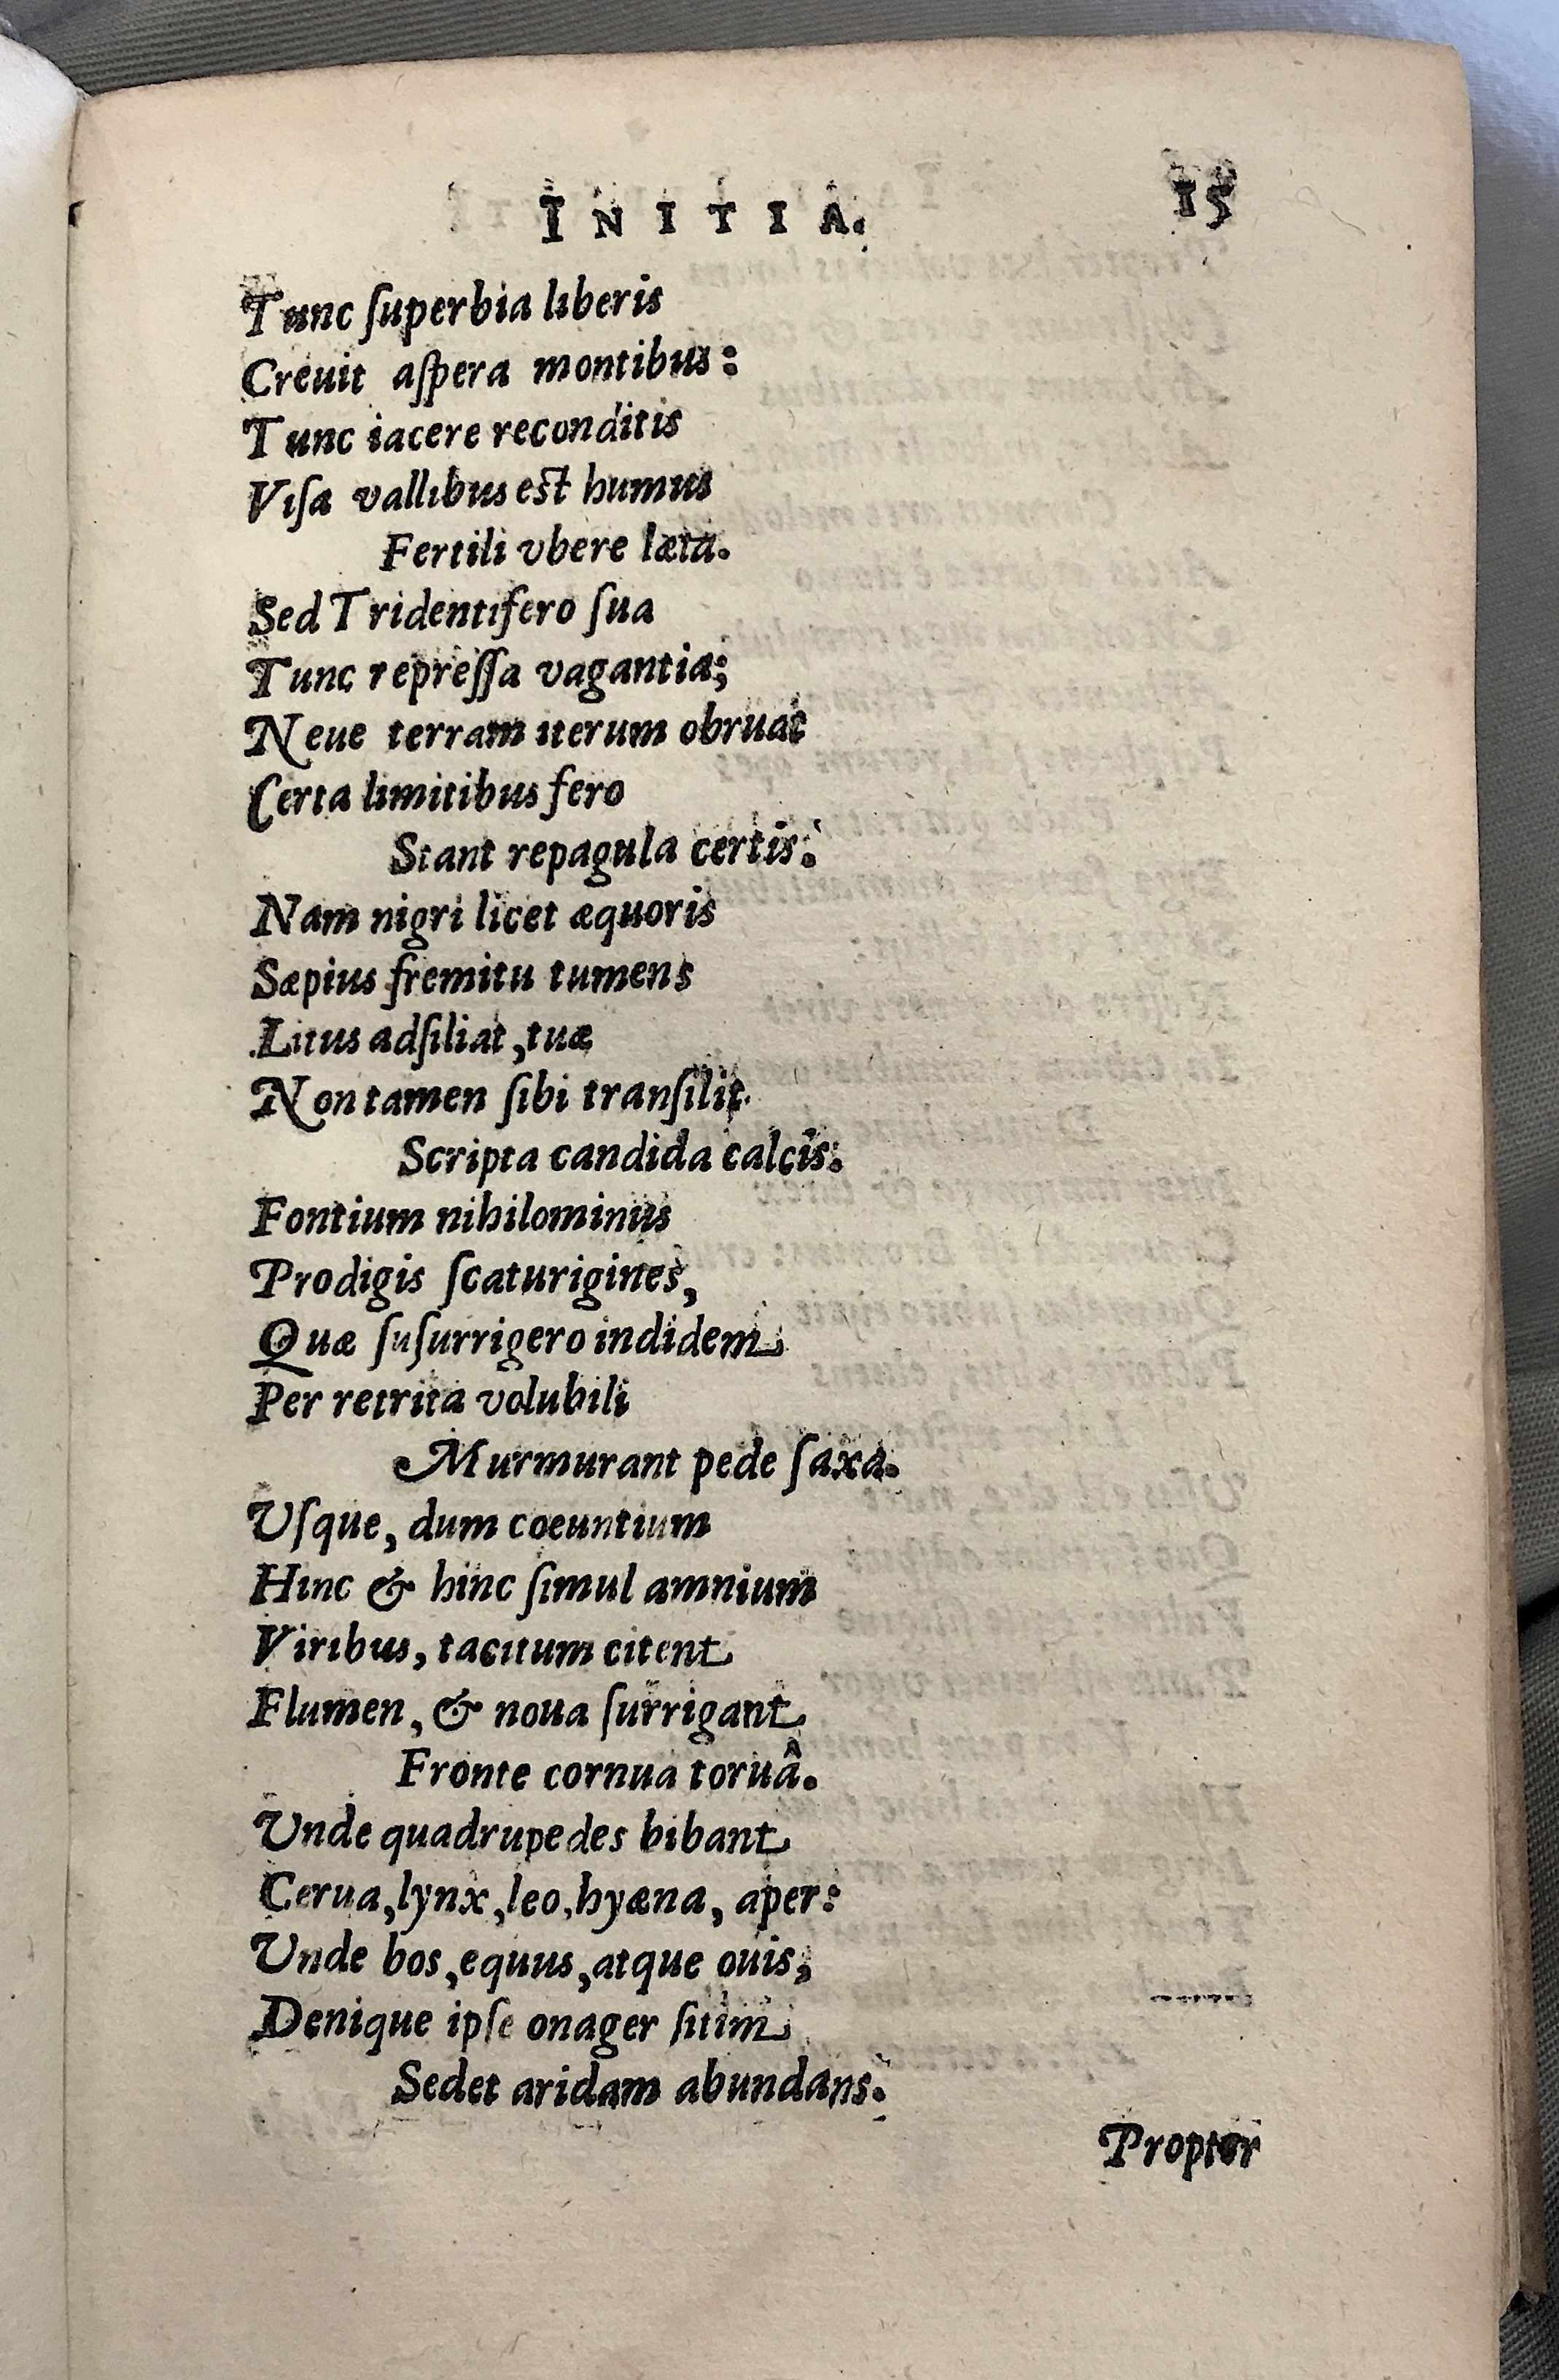 INITIA. 15
Tunc ſuperbia liberis
Creuit aſpera montibus:
Tunc iacere reconditis
Viſa vallibus est humus
Fertili vbere læta.
Sed Tridentifero ſua
Tunc repreſſa vagantia;
Neue terram iterum obruat
Certa limitibus fero
Stant repagula certis.
Nam nigri licet æquoris
Sæpius fremitu tumens
Litus adſiliat, tuæ
Non tamen ſibi tranſilit
Scripta candida calcis.
Fontium nihilominus
Prodigis ſcaturigines,
Quæ ſuſurrigero indidem
Per retrita volubili
Murmurant pede ſaxa.
Uſque, dum coeuntium
Hinc & hinc ſimul amnium
Viribus, tacitum citent
Flumen, & noua ſurrigant
Fronte cornua toruâ.
Unde quadrupedes bibant
Cerua, lynx, leo, hyæna, aper:
Unde bos, equus, atque ouis,
Denique ipſe onager ſitim
Sedet aridam abundans.
Propter